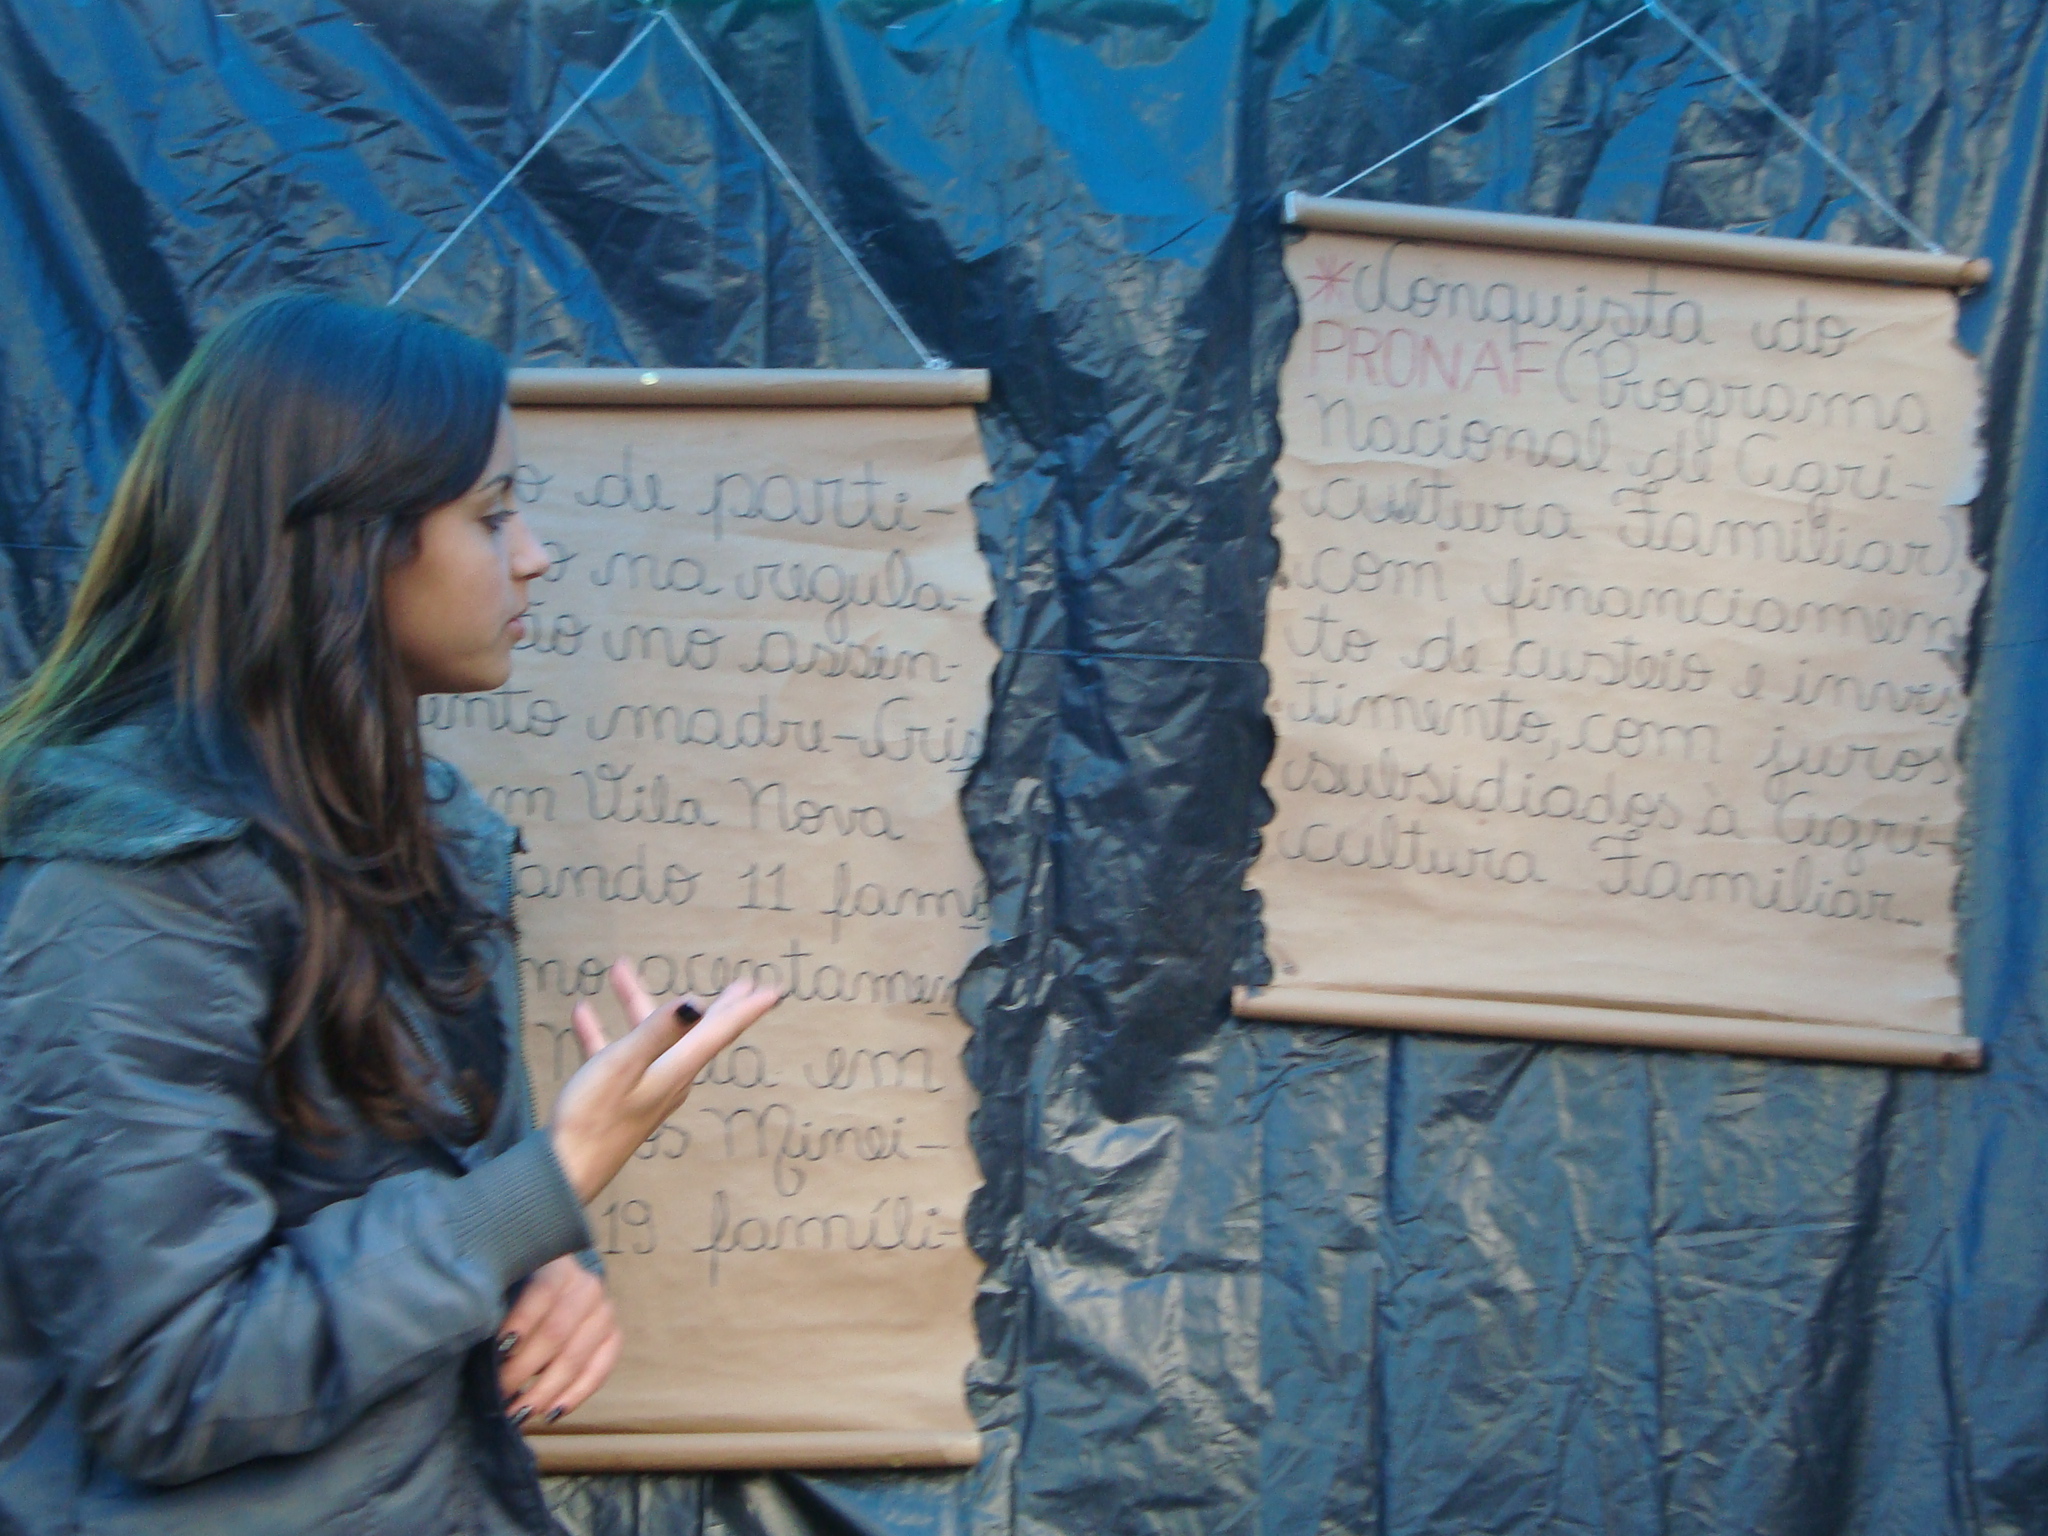 de parti-
na regula-
ão no assen-
ento madre-Cris
m Vila Nova
ando 11 famí
no acentamen
em
os Minei-
19 famíli-
*Conquista do
PRONAF (Programa
Nacional de Agri-
cultura Familiar),
com financiamen
to de custeio e inves
timento, com juros
subsidiados à Agri-
cultura Familiar...